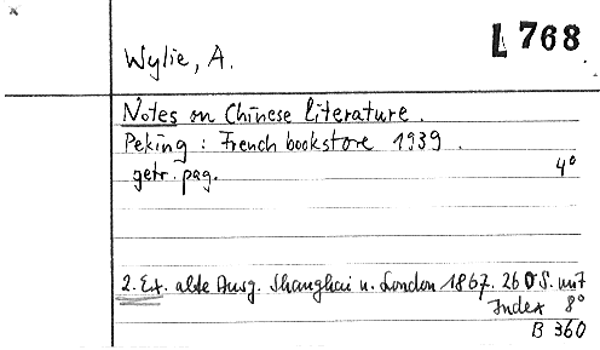 L 768
Wylie, A.
Notes on Chinese literature.
Peking : French bookstore 1939.
getr. pag. 4°
2. Ex. alte Ausg. Shanghai u. London 1867. 260 S. mit
Index 8°
B 360